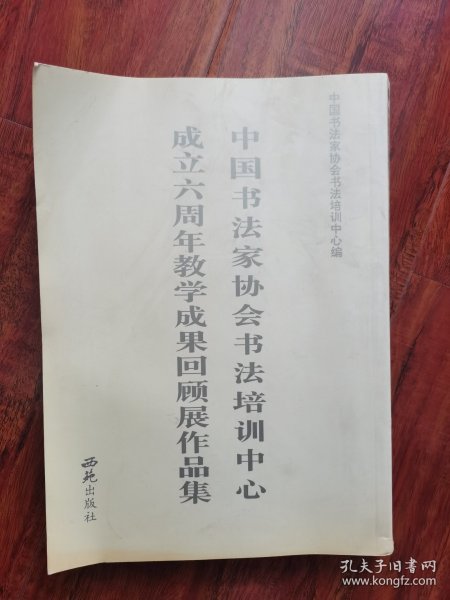 中国书法家协会书法培训中心编
中国书法家协会书法培训中心
成立六周年教学成果回顾展作品集
西苑出版社
孔夫子旧书网
www.kongfz.com